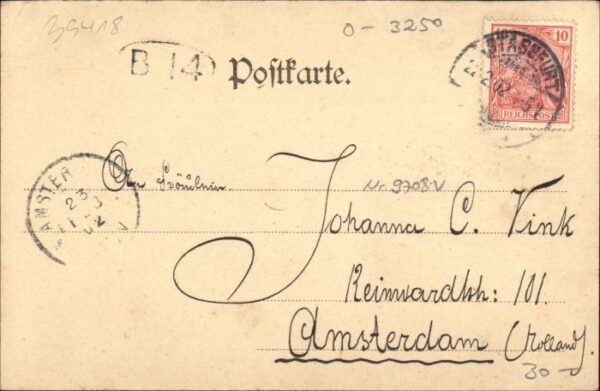 39418
0-3250
B 14
Postkarte.
10
REICHSPOST
STASSFURT
AMSTER
23
An Fräulein
Nr. 9708 V
Johanna C. Vink
Reinwardtstr: 101.
Amsterdam (Holland).
30-